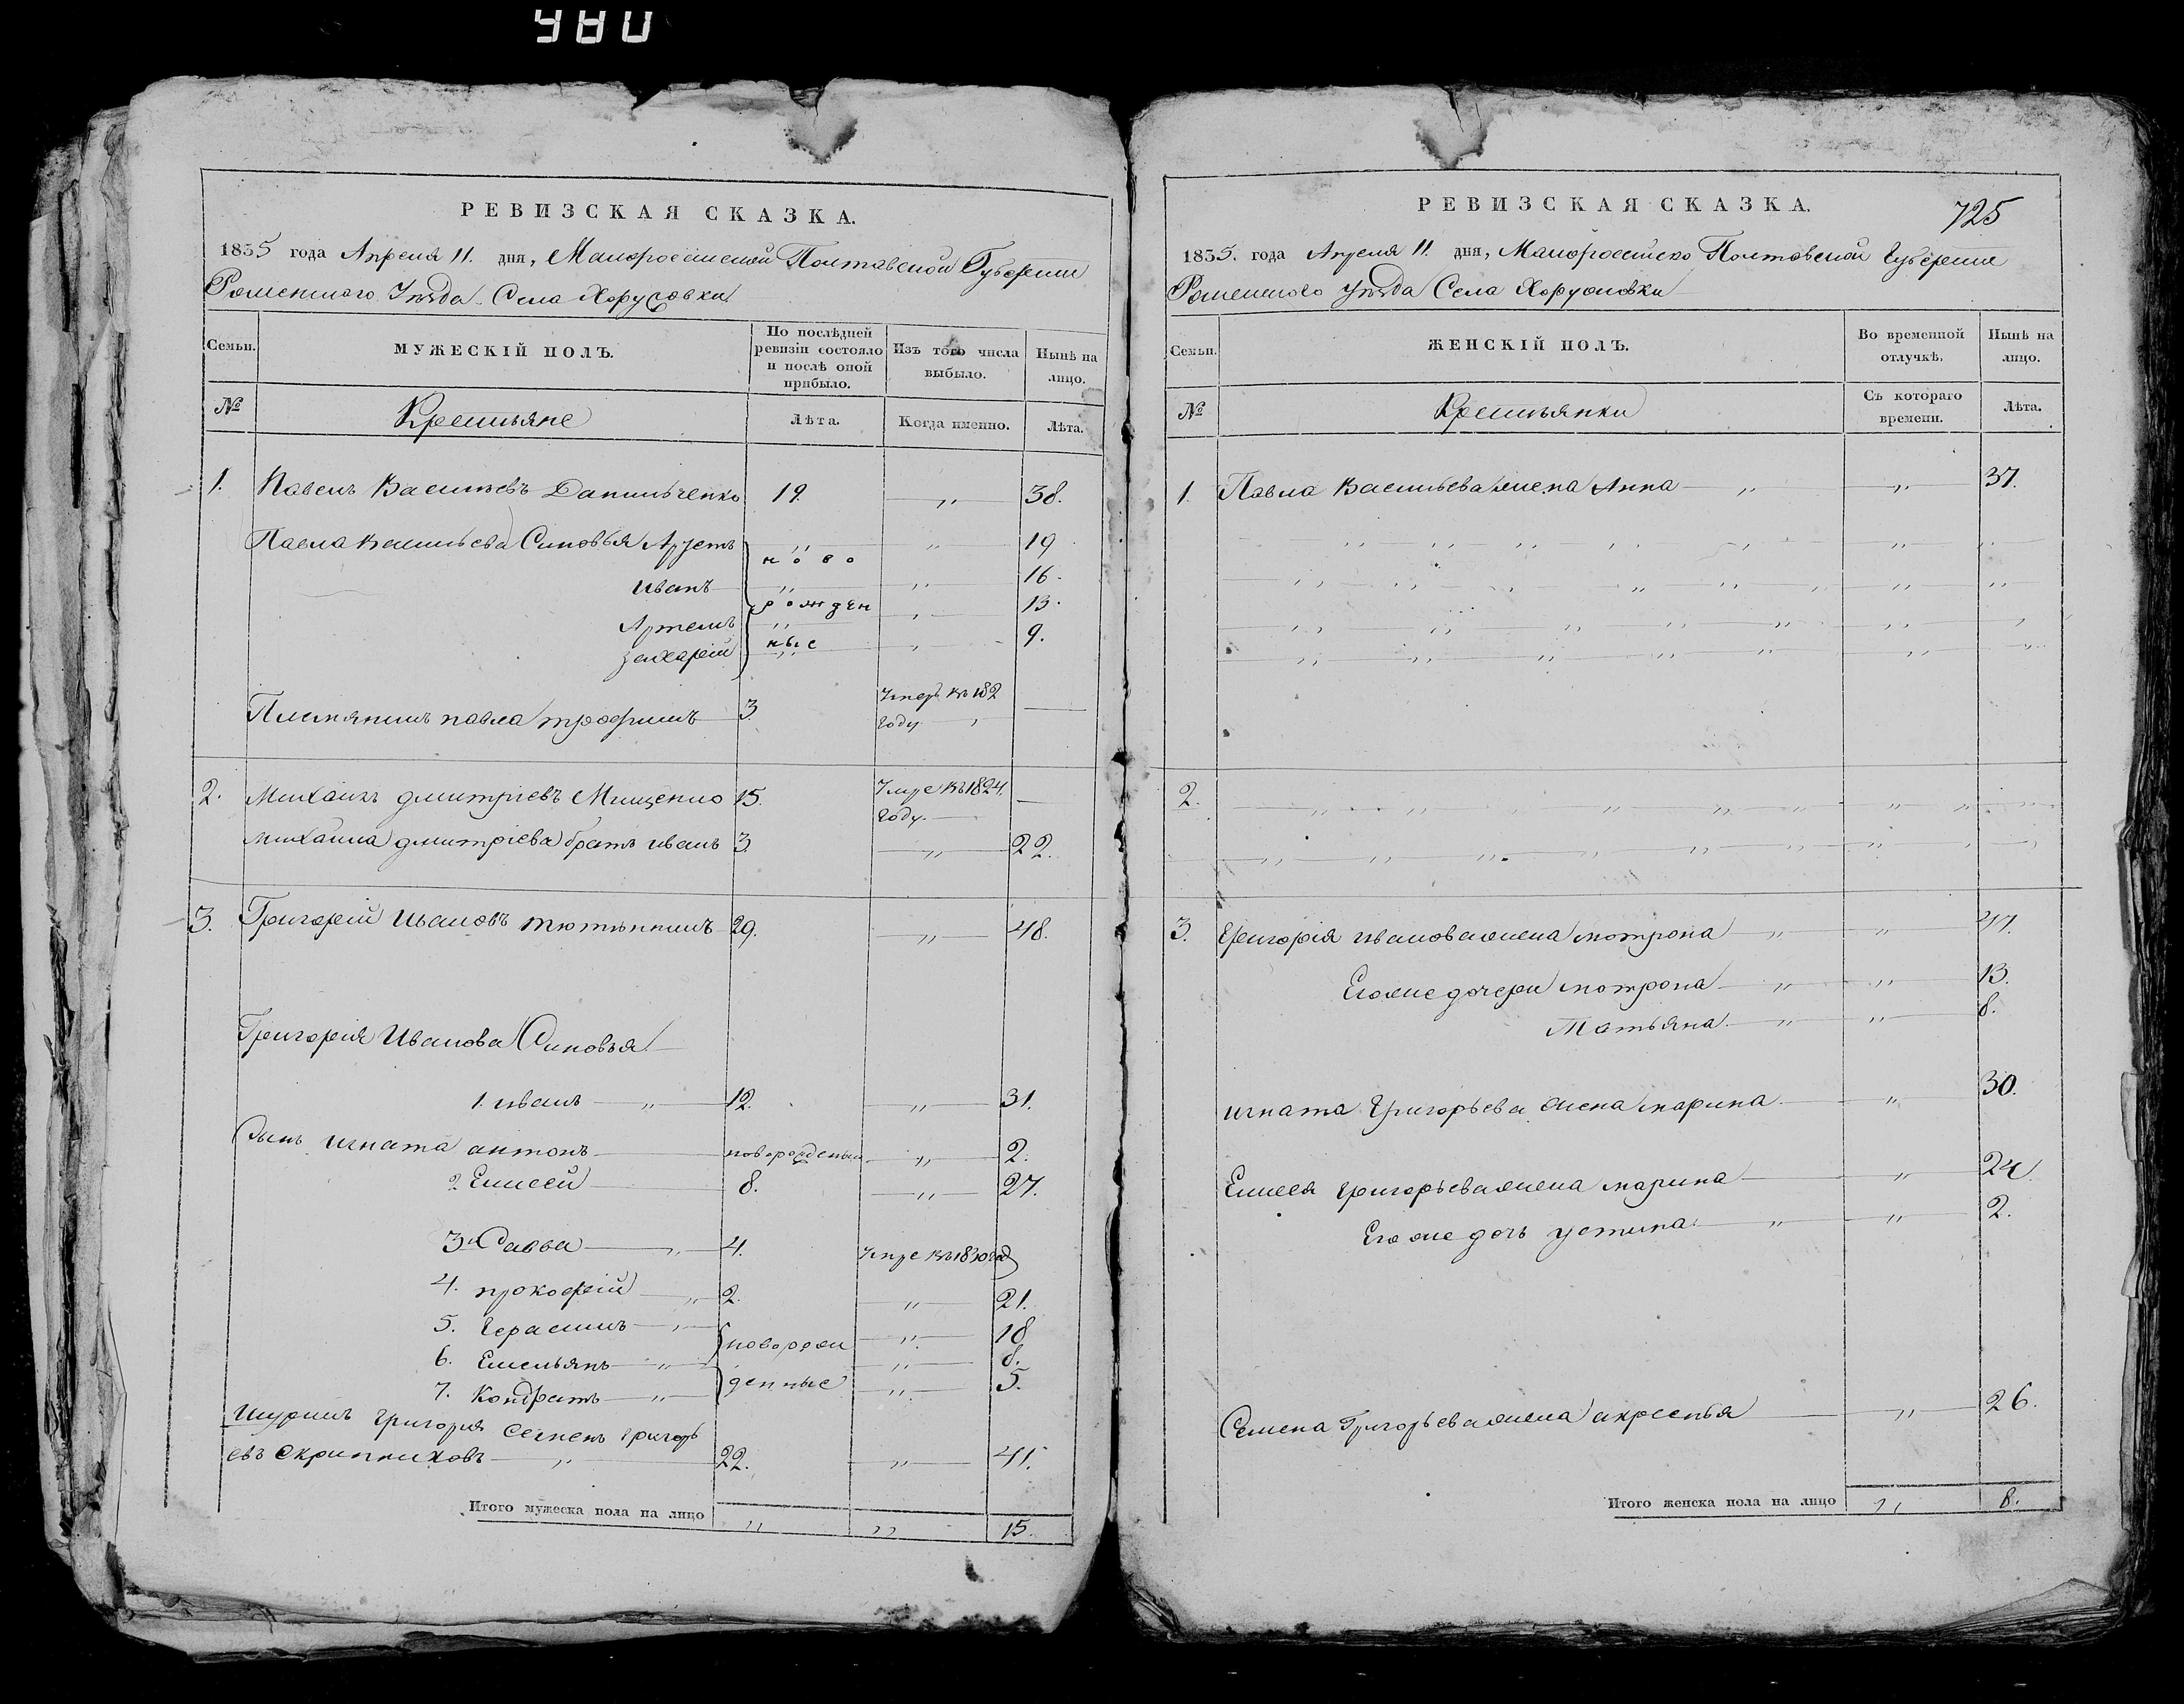 980
РЕВИЗСКАЯ СКАЗКА.
1835 года Апреля 11. дня, Малороссійской Полтавской Губерніи
Роменского Уѣзда Села Хоружовки
Семьи.
МУЖЕСКІЙ ПОЛЪ.
По послѣдней ревизіи состояло и послѣ оной прибыло.
Изъ того числа выбыло.
Нынѣ на лицо.
№
Крестьяне
Лѣта.
Когда именно.
Лѣта.
1. Павелъ Васильевъ Данильченко 19. „ 38.
Павла Васильева Синовья „ „ 19
ново
иванъ „ „ 16.
рожден
Артемъ „ „ 13.
ные
захарій „ „ 9.
Племянникъ павла трофимъ 3. Умеръ въ 182
году
2. Михаилъ дмитріевъ Мищенко 15. Умре въ 1824.
году.
михаила дмитріева братъ иванъ 3. „ 22.
3. Григорій ивановъ тютюнникъ 29. „ 48.
Григорія Иванова Синовья
1. иванъ „ 12. „ 31.
Сынъ игната антонъ новорожденый „ 2.
2 Елисей 8. „ 27.
3й Савва „ 4. Умре въ 1830 год
4. прокофій „ 2. „ 21.
5. Герасимъ „ „ 18
новорож
6. Емельянъ „ „ 8.
денные
7. Кондратъ „ „ 5.
Шуринъ григория Семенъ григорь
евъ Скрипниковъ „ 22. „ 41.
Итого мужеска пола на лицо „ „ 15.
РЕВИЗСКАЯ СКАЗКА.
725
1835. года Апреля 11. дня, Малороссійско Полтовской Губерніи
Роменского уѣзда Села Хоружовки
Семьи.
ЖЕНСКІЙ ПОЛЪ.
Во временной отлучкѣ.
Нынѣ на лицо.
№
Крестьянки
Съ котораго времени.
Лѣта.
1. Павла Васильева жена Анна „ „ 37.
2.
3. Григорія иванова жена мотрона „ „ 47.
Его же дочери мотрона „ „ 13.
Татьяна „ „ 8.
игната Григорьева жена марина „ 30.
Елисея григорьева жена марина „ 24
Его же дочь устина „ „ 2.
Семена Григорьева жена акресенья „ 26.
Итого женска пола на лицо „ 8.